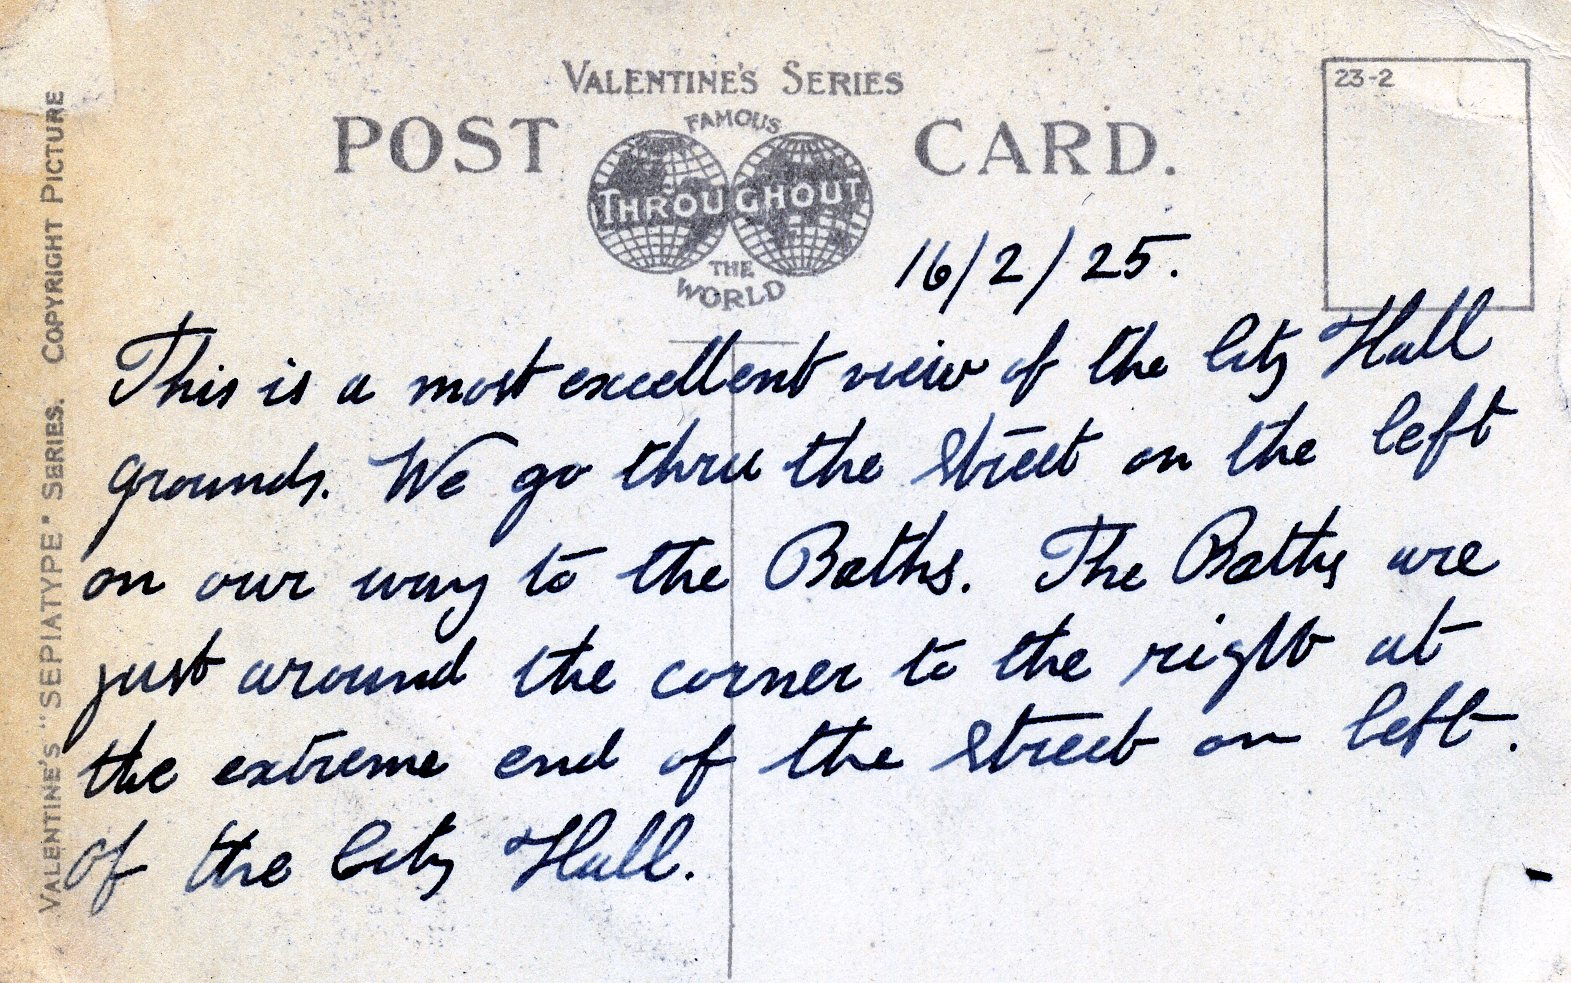 VALENTINE'S SERIES
POST CARD.
FAMOUS
THROUGHOUT
THE
WORLD
23-2
VALENTINE'S "SEPIATYPE" SERIES. COPYRIGHT PICTURE
16/2/25.
This is a most excellent view of the City Hall
grounds. We go thru the street on the left
on our way to the Baths. The Baths are
just around the corner to the right at
the extreme end of the street on left.
of the City Hall.